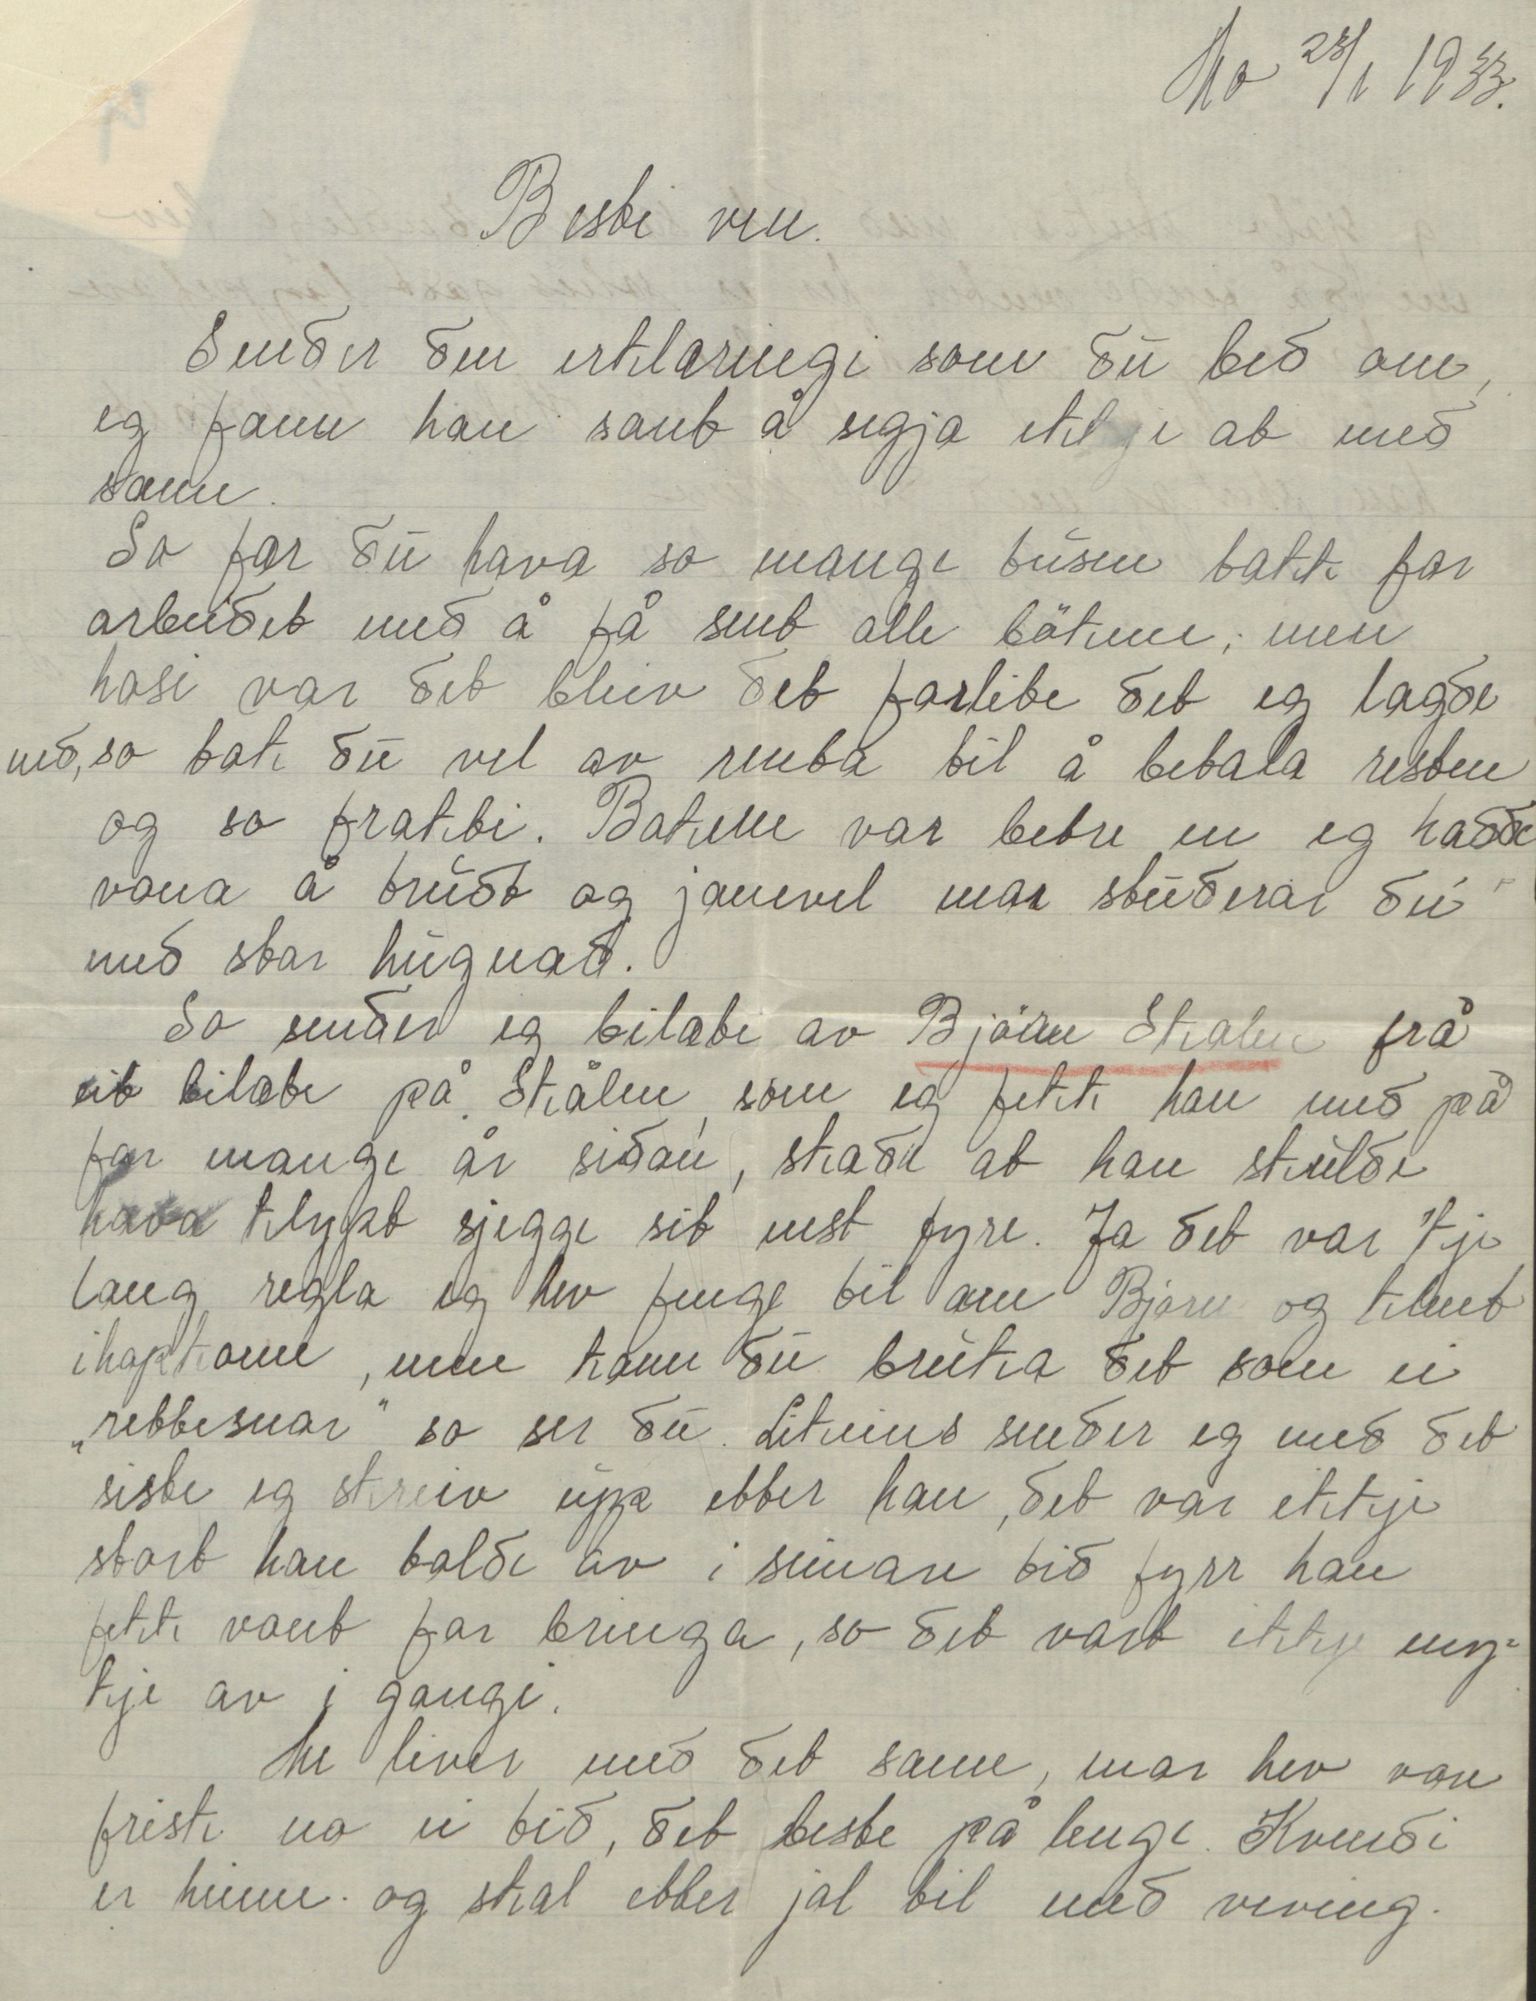 Mo 28/1 1933.
Beste ven.
Sender den erklæringi som du bed om,
eg fann han sant å segja ikkje at med
same.
So får du hava so mange tusen takk for
arbeidet med å få sent alle bökene, men
hosi var det bleiv det forlite det eg lagde
ned, so tak du vel av renta til å betala resten
og so frakti. Bøkene var betre en eg hadde
vona å trudt og jamvel mor studerar du
med stor hugnad.
So sender eg bilæte av Björn Skålen frå
eit bilæte på Skålen, som eg fekk han med på
for mange år sidan, skade at han skulde
hava klypt sjegge sit nest fyre. Ja det var 'kje
lang regla eg hev fenge til om Björn og klent
ihopkome, men kann du bruka det som ei
"rettesnor" so ser du. Likeins sender eg med det
siste eg skreiv upp etter han, det var ikkje
stort han tolde av i seinare tid fyrr han
fekk vont for bringa, so det vart ikkje my-
kje av i gongi.
Me liver med det same, mor hev vore
frisk no ei tid, det beste på lenge. Kvendi
er heime og skal etter jol til med veving.